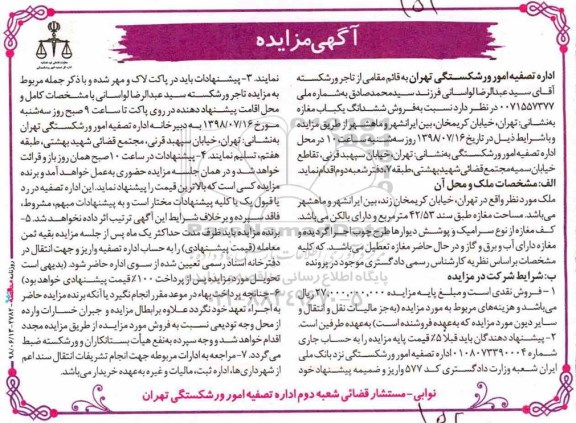 آگهی مزایده
اداره تصفیه امور ورشکستگی تهران به قائم مقامی از تاجر ورشکسته
آقای سید عبدالرضا لواسانی فرزند سید محمدصادق به شماره ملی
۰۰۷۱۵۵۷۳۷۷ در نظر دارد نسبت به فروش ششدانگ یکباب مغازه
به نشانی: تهران، خیابان کریمخان، بین ایرانشهر و ماهشهر از طریق مزایده
و با شرایط ذیل در تاریخ ۱۳۹۸/۰۷/۱۶ روز سه شنبه ساعت ۱۰ در محل
اداره تصفیه امور ورشکستگی به نشانی: تهران، خیابان سپهبد قرنی، تقاطع
خیابان سمیه مجتمع قضائی شهید بهشتی، طبقه ۷، دفتر شعبه دوم اقدام نماید.
الف: مشخصات ملک و محل آن
ملک مورد نظر واقع در تهران، خیابان کریمخان زند، بین ایرانشهر و ماهشهر
می باشد. مساحت مغازه طبق سند ۴۲/۵۳ مترمربع و دارای بالکن می باشد.
کف مغازه از نوع سرامیک و پوشش دیوارها طرح چوب اجرا گردیده و
مغازه دارای آب و برق و گاز و در حال حاضر مغازه تعطیل می باشد. که کلیه
مشخصات بر اساس نظریه کارشناس رسمی دادگستری موجود در پرونده
ب: شرایط شرکت در مزایده
۱- فروش نقدی است و مبلغ پایه مزایده ۳۷/۰۰۰/۰۰۰/۰۰۰ ریال
می باشد و هزینه های مربوط به مورد مزایده (به جز مالیات نقل و انتقال و
سایر دیون مورد مزایده که به عهده فروشنده است) به عهده طرفین است.
۲- پیشنهاد دهندگان باید قبلا ۵٪ قیمت پایه مزایده را به حساب جاری
شماره ۰۱۰۸۰۷۳۳۹۰۰۴ اداره تصفیه امور ورشکستگی نزد بانک ملی
ایران شعبه وزارت دادگستری کد ۵۷۷ واریز و ضمیمه پیشنهاد خود
نمایند. ۳- پیشنهادات باید در پاکت لاک و مهر شده و با ذکر جمله مربوط
به مزایده تاجر ورشکسته سید عبدالرضا لواسانی با مشخصات کامل و
محل اقامت پیشنهاد دهنده در روی پاکت تا ساعت ۹ صبح روز سه شنبه
مورخ ۱۳۹۸/۰۷/۱۶ به دبیرخانه اداره تصفیه امور ورشکستگی تهران
به نشانی: تهران، خیابان سپهبد قرنی، مجتمع قضائی شهید بهشتی، طبقه
هفتم، تسلیم نمایند. ۴- پیشنهادات در ساعت ۱۰ صبح همان روز باز و قرائت
خواهد شد و در همان جلسه مزایده حضوری به عمل خواهد آمد و برنده
مزایده کسی است که بالاترین قیمت را پیشنهاد نماید. این اداره تصفیه در رد
یا قبول یک یا کلیه پیشنهادات مختار است و به پیشنهادات مبهم، مشروط،
فاقد سپرده و بر خلاف شرایط این آگهی ترتیب اثر داده نخواهد شد. ۵-
برنده مزایده باید ظرف مدت حداکثر یک ماه پس از جلسه مزایده بقیه ثمن
معامله (قیمت پیشنهادی) را به حساب اداره تصفیه واریز و جهت انتقال در
دفترخانه اسناد رسمی تعیین شده از سوی اداره حاضر شود. (بدیهی است
تحویل مورد مزایده پس از پرداخت ۱۰۰٪ قیمت پیشنهادی خواهد بود)
۶- چنانچه پرداخت بهاء در موعد مقرر انجام نگیرد یا آنکه برنده مزایده حاضر
به اجراء تعهد خود نگردد علاوه بر ابطال مزایده و جبران خسارات وارده
از محل وجه تودیعی نسبت به فروش مورد مزایده از طریق مزایده مجدد
اقدام خواهد شد و وجه سپرده به نفع هیأت بستانکاران و ورشکسته ضبط
می گردد. ۷- مراجعه به ادارات مربوطه جهت انجام تشریفات انتقال سند اعم
از شهرداری ها، اداره ثبت، مالیات و غیره به عهده خریدار می باشد.
نوابی - مستشار قضائی شعبه دوم اداره تصفیه امور ورشکستگی تهران